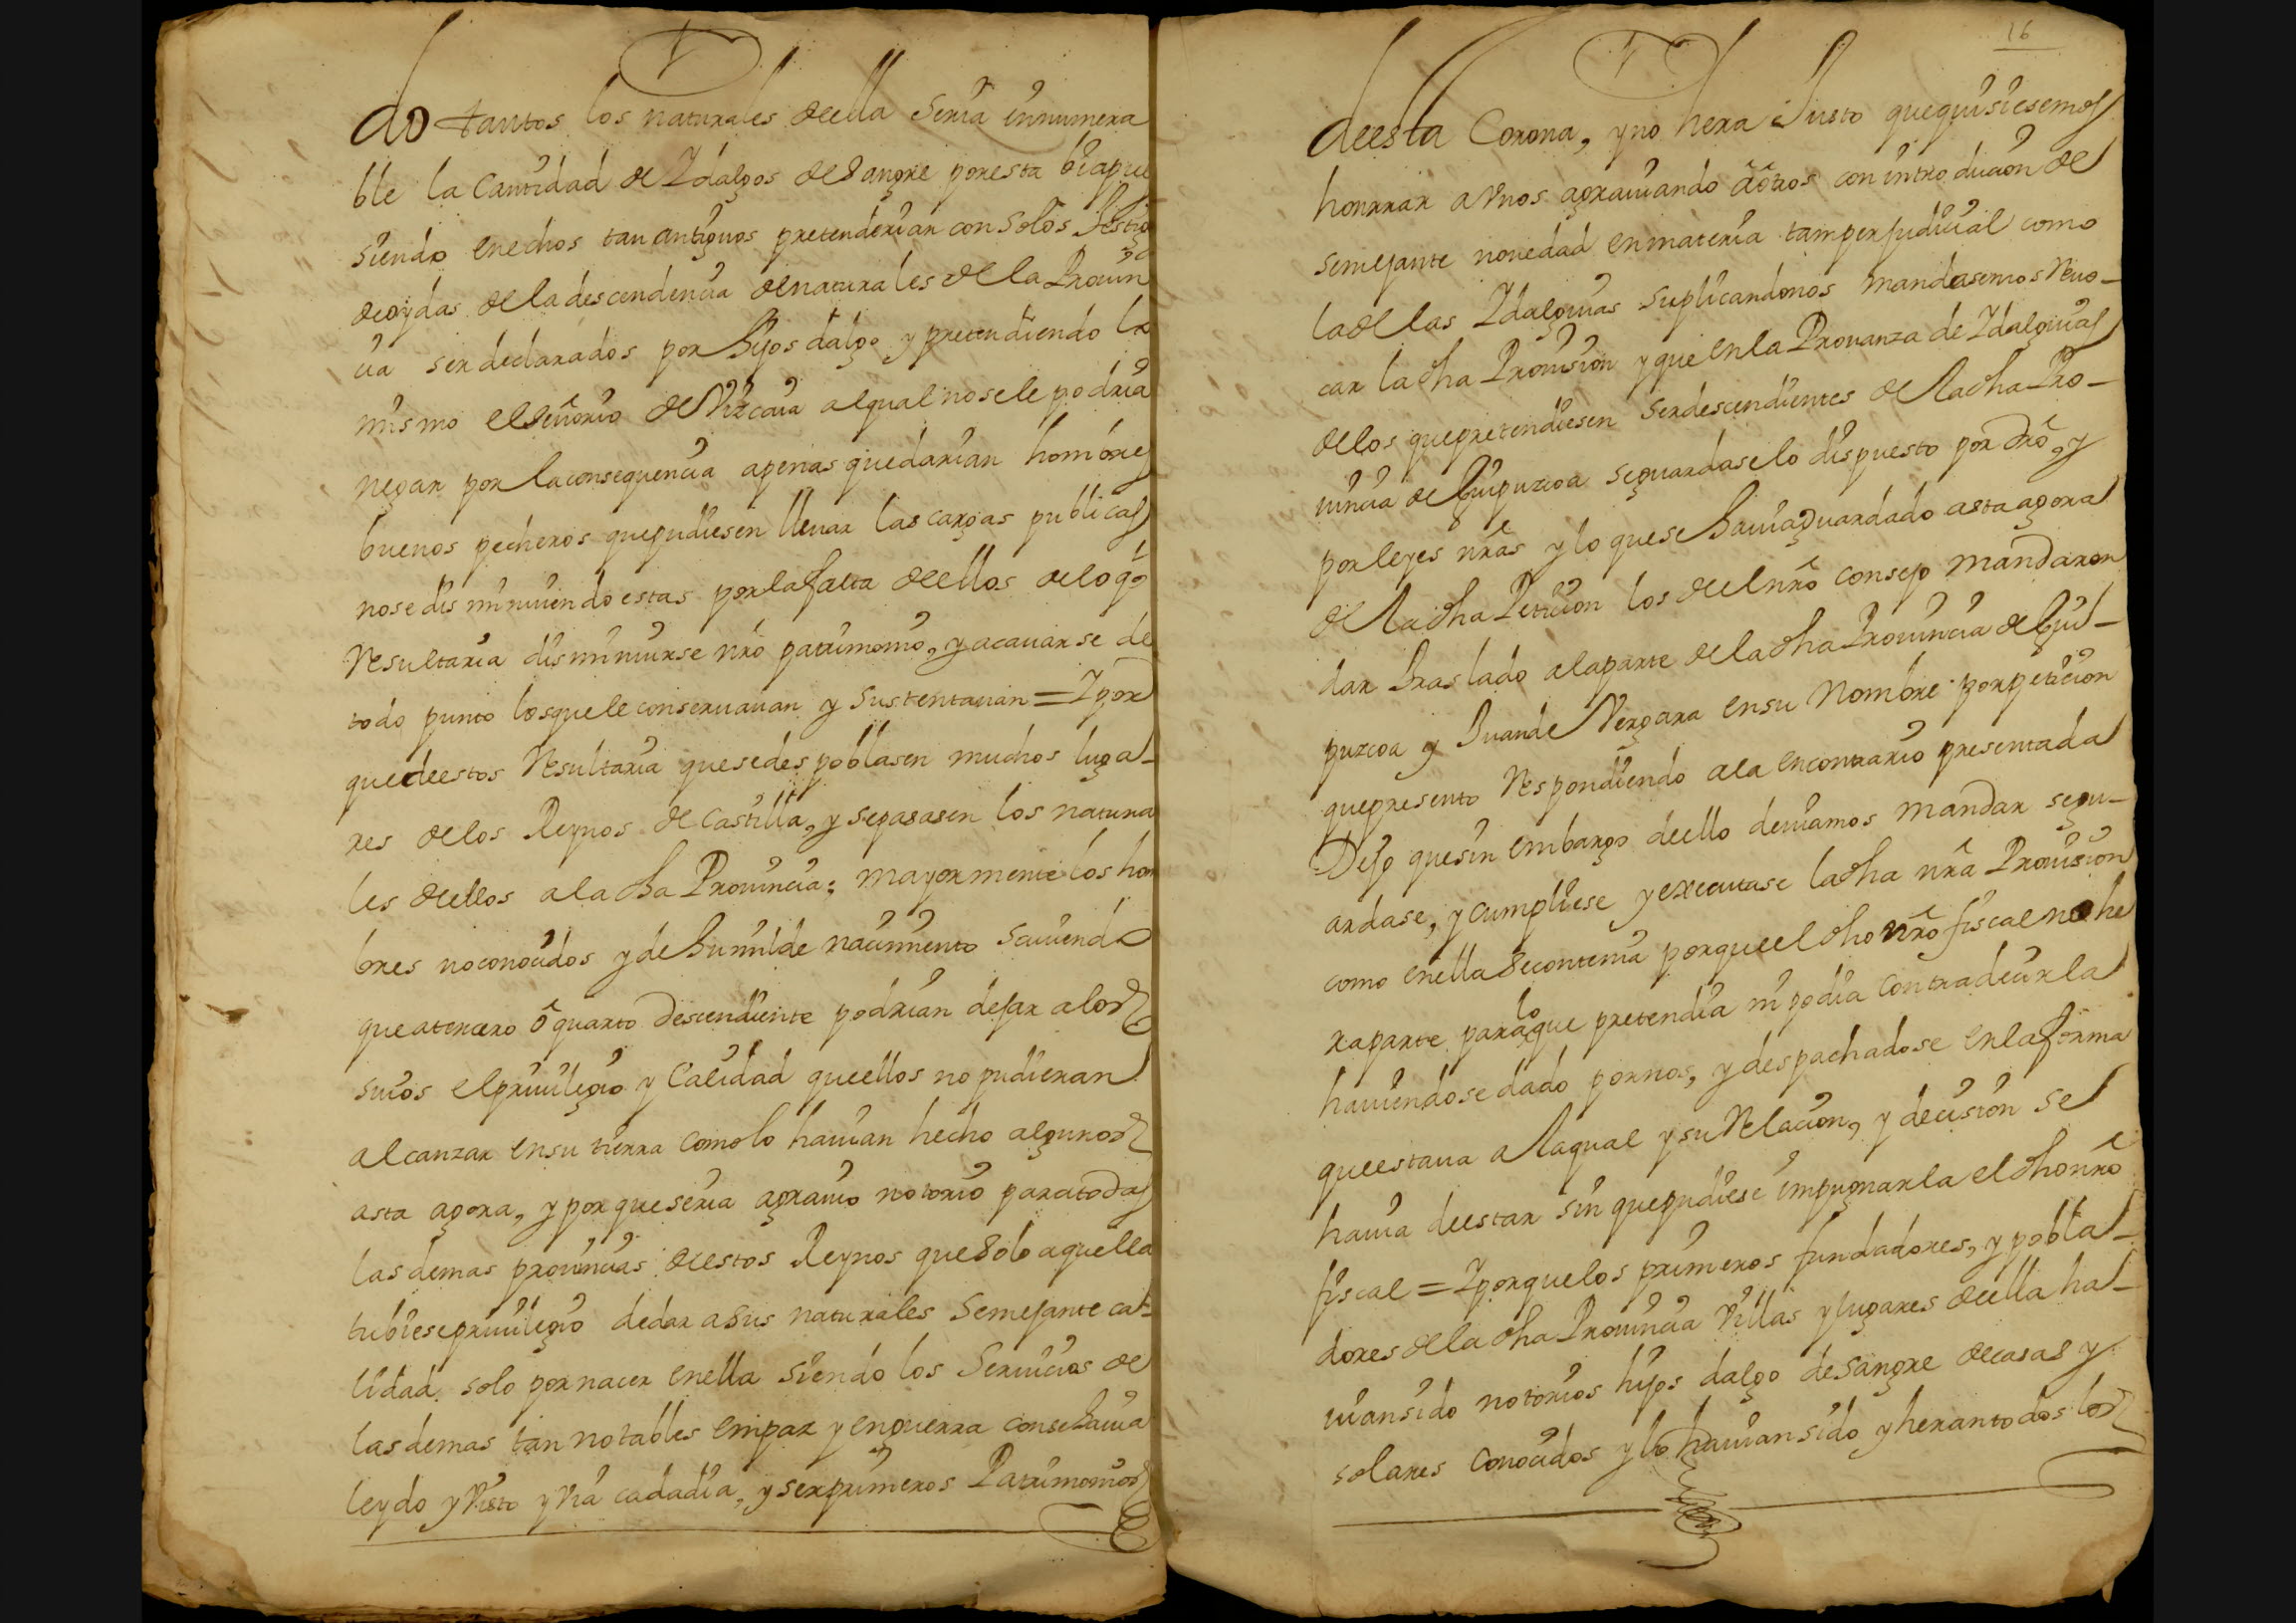 do tantos los naturales de ella Seria innumera
ble la Cantidad de Idalgos de Sangre por esta bia pue
siendo en echos tan antiguos pretenderian con solos testigos
de oydas de la descendencia de naturales de la Provin
cia ser declarados por hijos dalgo y pretendiendo lo
mismo el señorio de Vizcaia al qual no se le podria
negar por la consequencia apenas quedarian hombres
buenos pecheros que pudiesen lleuar las cargas publicas
no se disminuiendo estas por la falta de ellos de lo q̃
Resultaria disminuirse nrõ patrimonio, y acauarse de
todo punto los que le conseruauan y sustentauan = I por
que de estos Resultaria que se despoblasen muchos luga-
res de los Reynos de Castilla, y se pasasen los natura
les de ellos a la dha Prouincia; mayormente los hom
bres no conocidos y de humilde nacimiento sauiendo
que a tercero ô quarto Descendiente podrian dejar a los
suios el priuilegio y Calidad que ellos no pudieran
alcanzar en su tierra como lo hauian hecho algunos
asta agora, y porque seria agrauio notorio para todas
las demas prouincias de estos Reynos que solo aquella
tubiese priuilegio de dar a sus naturales Semejante ca-
lidad solo por nacer en ella siendo los Seruicios de
las demas tan notables en paz y en guerra como se hauia
leydo y Visto y Via cada dia, y ser primeros Patrimonios
16
de esta Corona, y no hera Justo que quisiesemos
honrrar a Vnos agrauiando â ôtros con introducion de
semejante nouedad en materia tam perjudicial como
la de las Idalguias suplicandonos mandasemos Reuo-
car la dha Prouision y que en la Prouanza de Idalguias
de los que pretendiesen ser descendientes de la dha Pro-
uincia de Guipuzcoa se guardase lo dispuesto por drõ, y
por leyes nrãs y lo que se hauia guardado asta agora
de la dha Peticion los de el nrõ consejo mandaron
dar traslado a la parte de la dha Prouincia de Gui-
puzcoa y Juan de Vergara en su Nombre por peticion
que presento Respondiendo a la en contrario presentada
Dijo que sin embargo de ello deuiamos mandar segu-
ardase, y cumpliese y executase la dha nrã Prouision
como en ella Se contenia porque el dho nrõ fiscal no he
ra parte para lo que pretendia ni podia contradecirla
hauiendose dado por nos, y despachadose en la forma
que estaua a la qual y su Relacion, y decision se
hauia de estar sin que pudiese impugnarla el dho nrõ
fiscal = I porque los primeros fundadores, y pobla-
dores de la dha Prouincia Villas y lugares de ella ha-
uian sido notorios hijos dalgo de sangre de casas y
solares conocidos y lo hauian sido y heran todos los